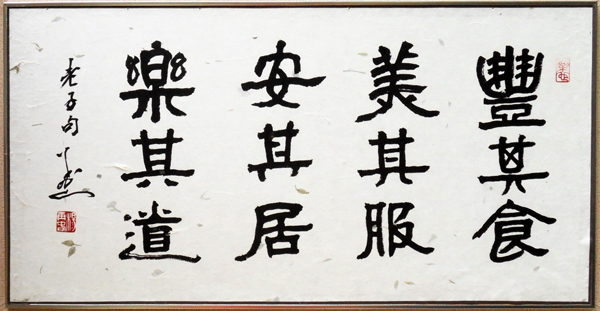 豐其食
美其服
安其居
樂其道
老子句